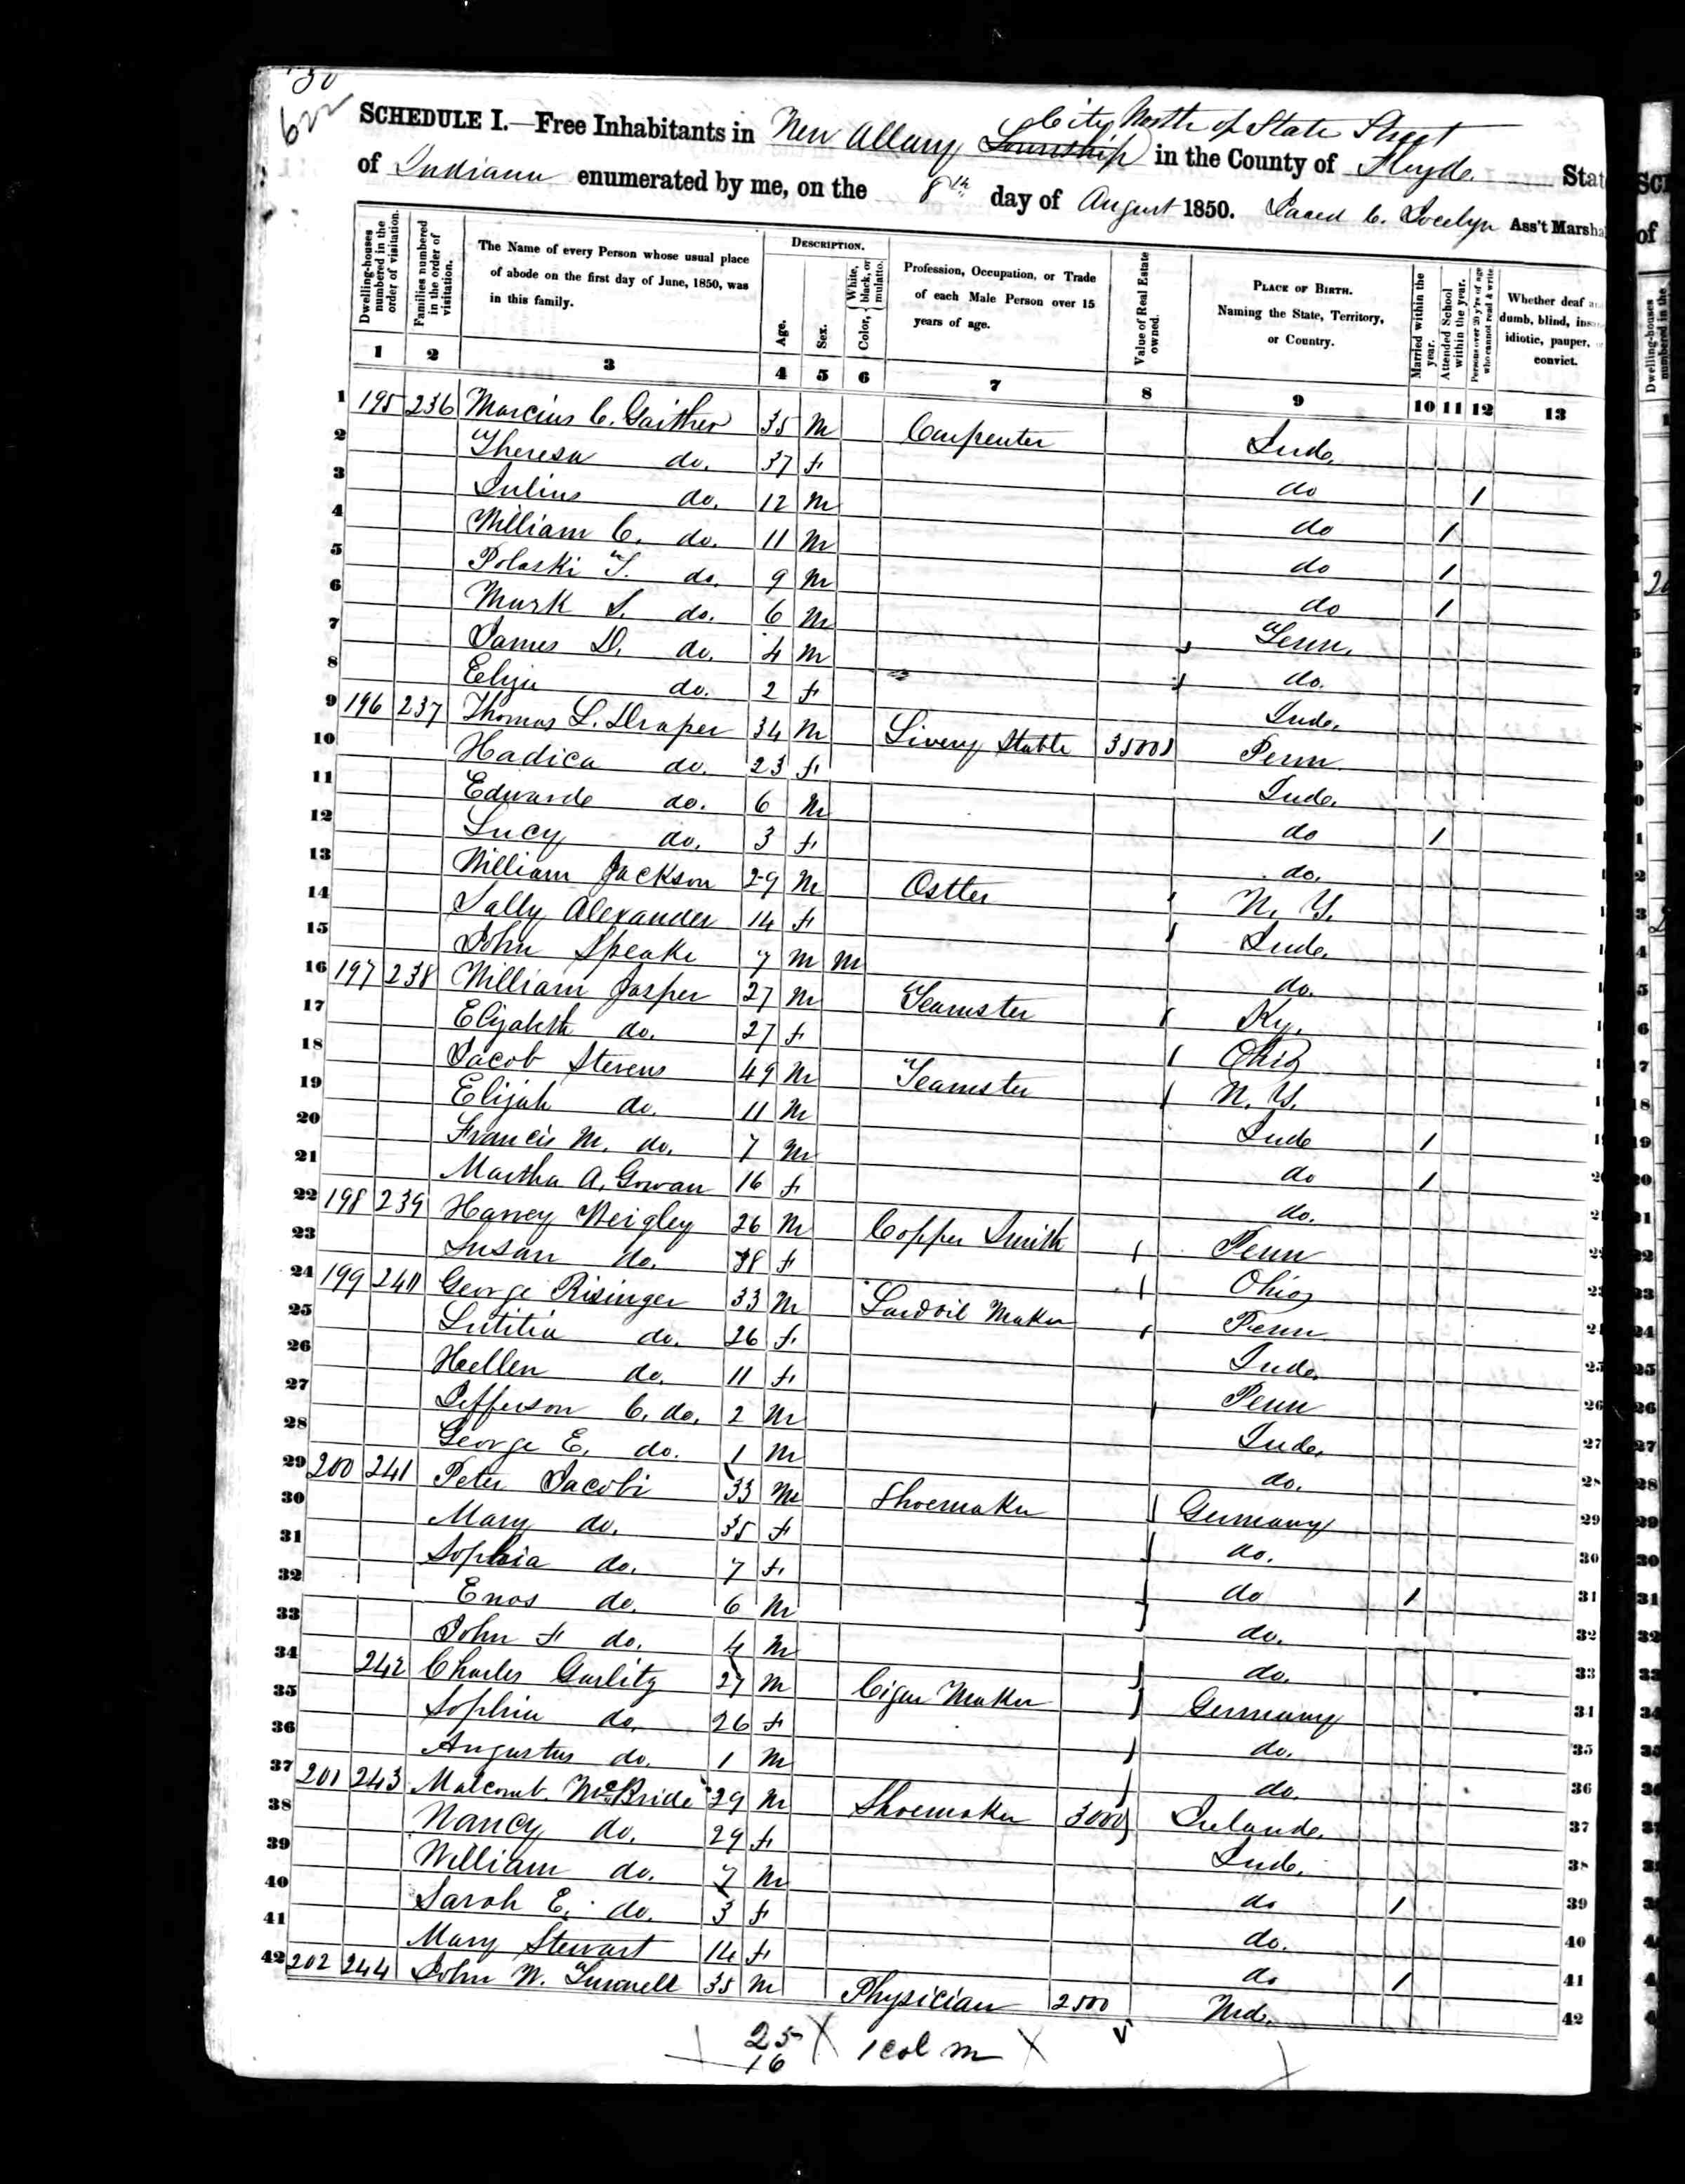 SCHEDULE I.—Free Inhabitants in New Albany Township City North of State Street in the County of Floyd State
of Indiana enumerated by me, on the 8th day of August 1850. Jared C. Jocelyn Ass't Marshal
Dwelling-houses numbered in the order of visitation.
Families numbered in the order of visitation.
The Name of every Person whose usual place of abode on the first day of June, 1850, was in this family.
DESCRIPTION.
Age.
Sex.
Color, White, black, or mulatto.
Profession, Occupation, or Trade of each Male Person over 15 years of age.
Value of Real Estate owned.
PLACE OF BIRTH. Naming the State, Territory, or Country.
Married within the year.
Attended School within the year.
Persons over 20 y'rs of age who cannot read & write.
Whether deaf and dumb, blind, insane, idiotic, pauper, or convict.
1 2 3 4 5 6 7 8 9 10 11 12 13
1 195 236 Marcius C. Gaither 35 M Carpenter Ind.
2 Theresa do. 37 F do 1
3 Julius do. 12 M do 1
4 William C. do. 11 M do 1
5 Polaski T. do. 9 M do 1
6 Mark S. do. 6 M Tenn.
7 James D. do. 4 M do.
8 Eliza do. 2 F Ind.
9 196 237 Thomas L. Draper 34 M Livery Stable 3500 Penn
10 Hadica do. 23 F Ind.
11 Edward do. 6 M do 1
12 Lucy do. 3 F do.
13 William Jackson 29 M Ostler N. Y.
14 Sally Alexander 14 F Ind.
15 John Speake 7 M M do.
16 197 238 William Jasper 27 M Teamster Ky.
17 Elizabeth do. 27 F Ohio
18 Jacob Stevens 49 M Teamster N. Y.
19 Elijah do. 11 M Ind 1
20 Francis M. do. 7 M do 1
21 Martha A. Gowan 16 F do.
22 198 239 Harvey Weigley 26 M Copper Smith Penn
23 Susan do. 38 F Ohio
24 199 240 George Risinger 33 M Lard Oil Maker Penn
25 Letitia do. 26 F Ind.
26 Hellen do. 11 F Penn
27 Jefferson C. do. 2 M Ind.
28 George E. do. 1 M do.
29 200 241 Peter Jacobi 33 M Shoemaker Germany
30 Mary do. 35 F do.
31 Sophia do. 7 F do 1
32 Enos do. 6 M do.
33 John F do. 4 M do.
34 242 Charles Garlitz 27 M Cigar Maker Germany
35 Sophia do. 26 F do.
36 Augustus do. 1 M do.
37 201 243 Malcomb McBride 29 M Shoemaker 3000 Ireland.
38 Nancy do. 29 F Ind.
39 William do. 7 M do 1
40 Sarah E. do. 3 F do.
41 Mary Stewart 14 F do 1
42 202 244 John W. Tunnell 35 M Physician 2500 Md.
25
16
1 col m